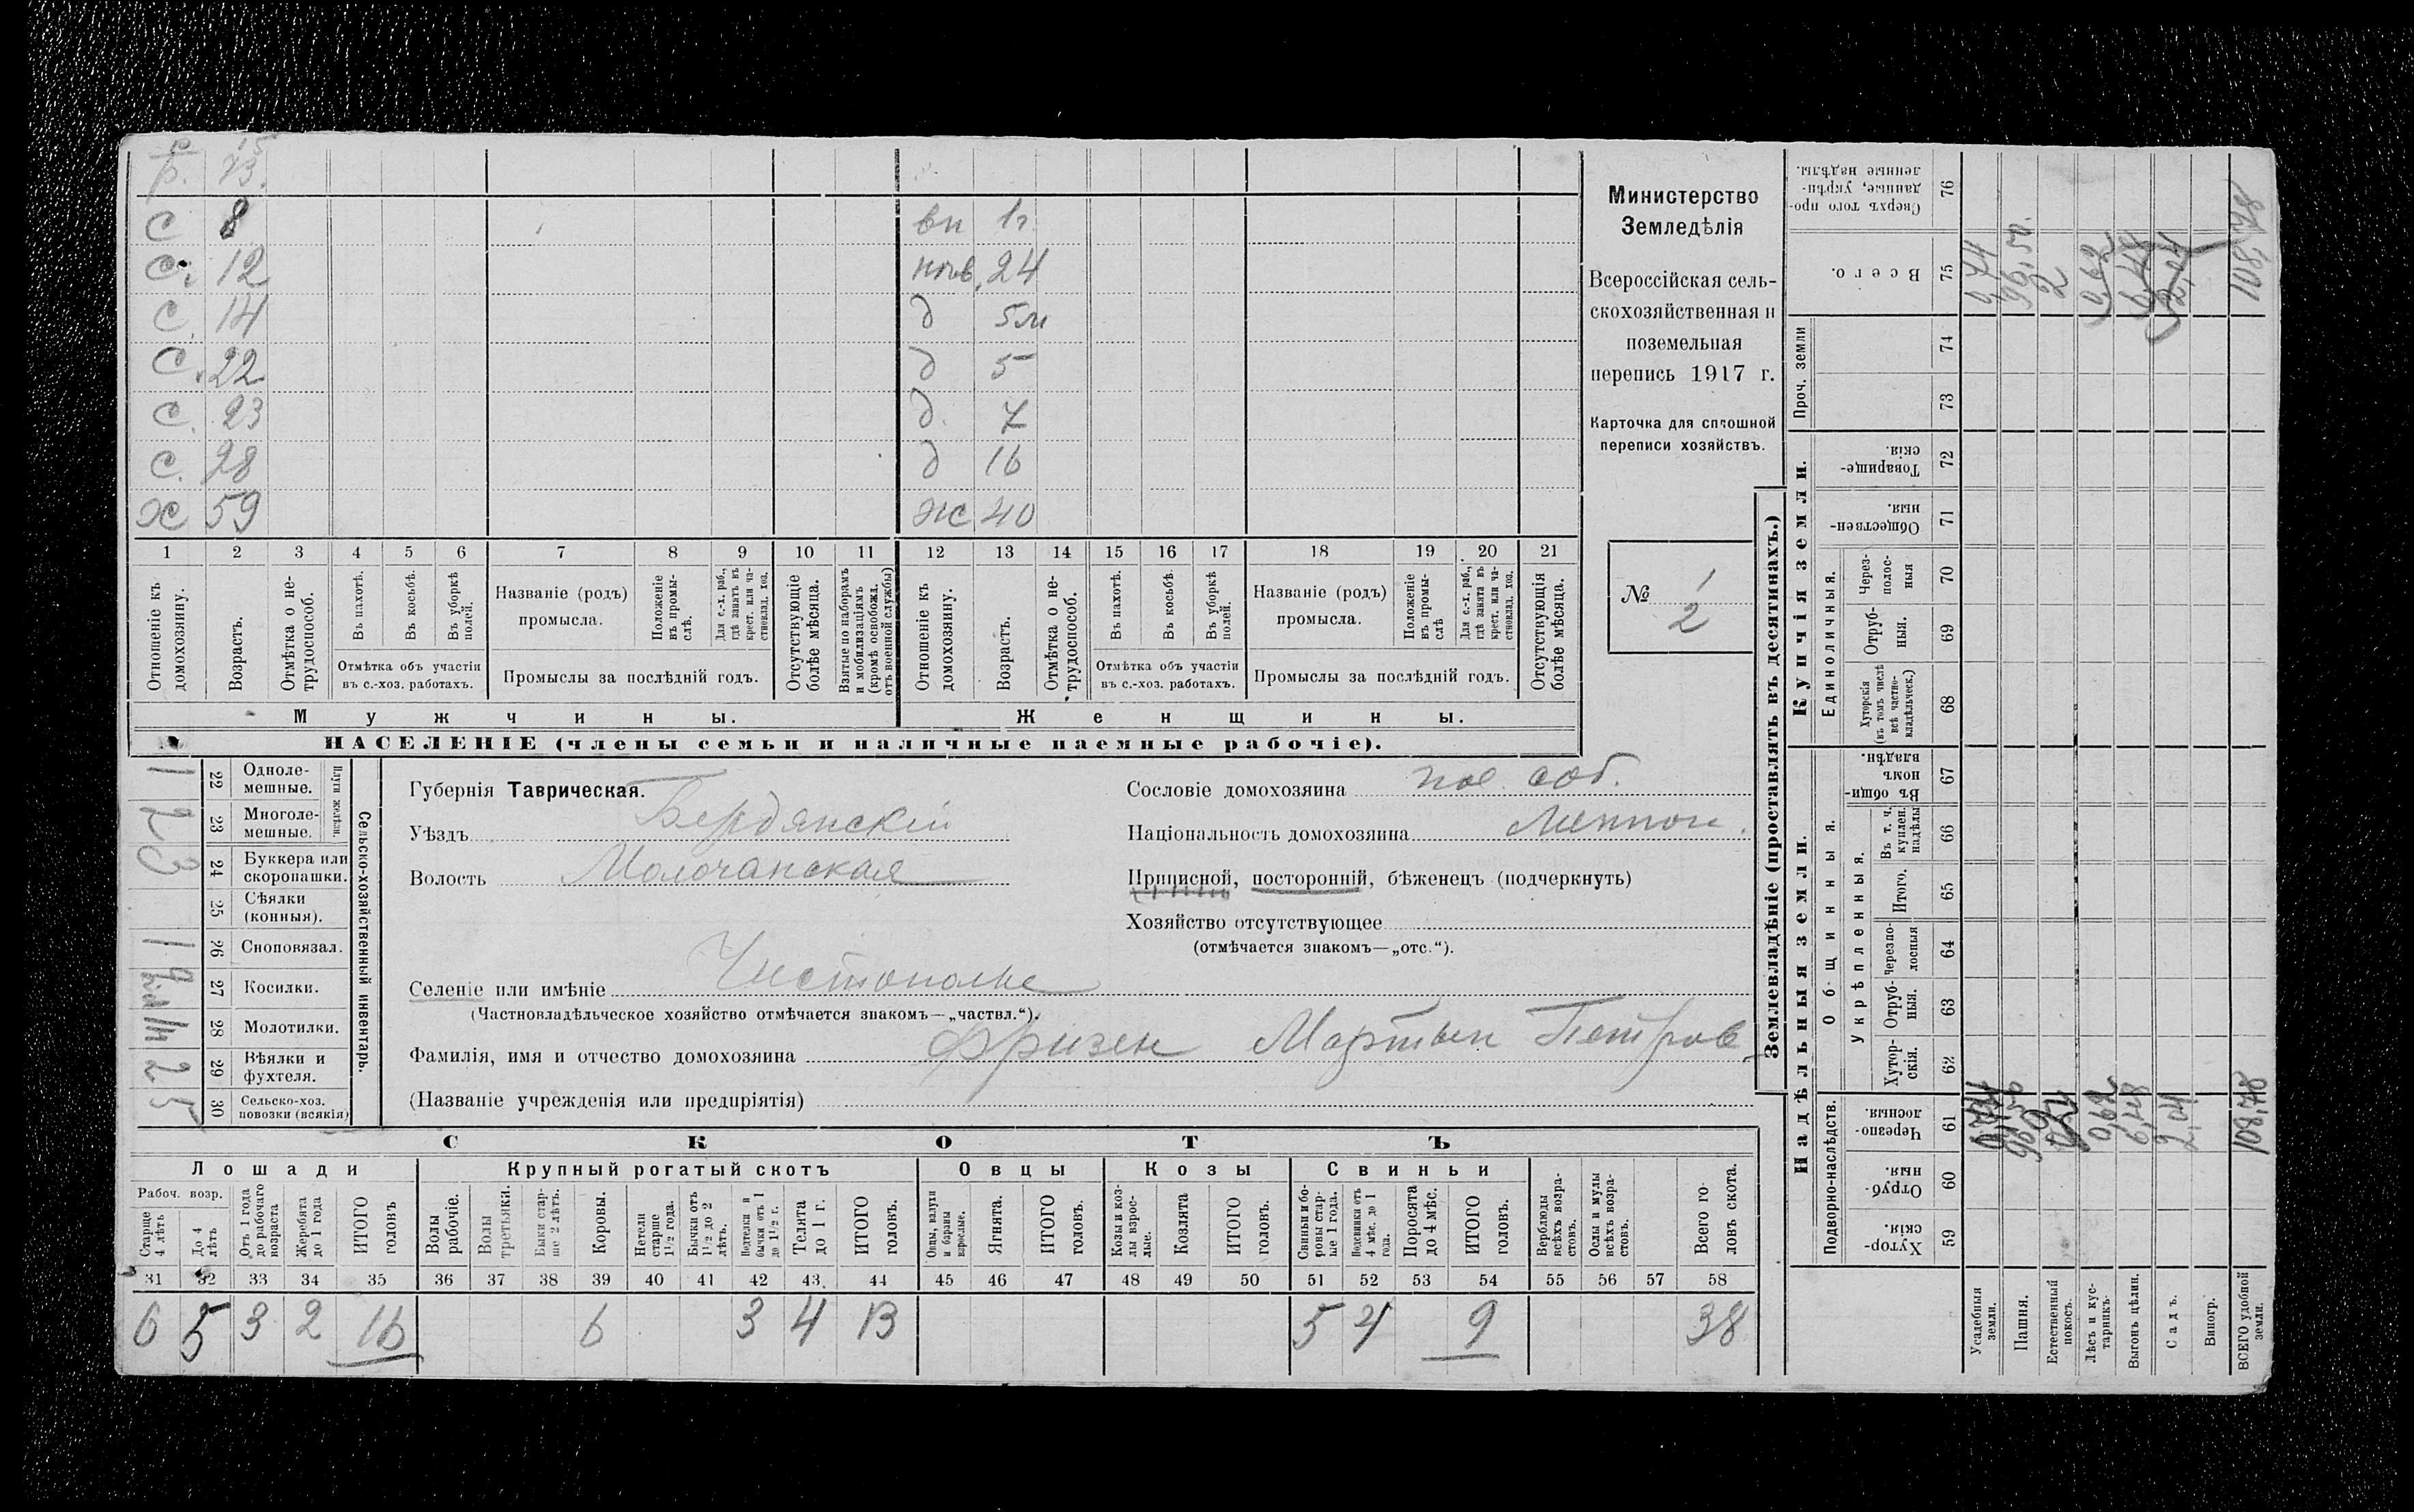 р. 13.
15
С 8
С. 12
С. 14
С. 22
С. 23
С. 28
Х 59
вн 1г.
нев. 24
д 5м
д 5
д. 7
д 16
ж 40
1 2 3 4 5 6 7 8 9 10 11 12 13 14 15 16 17 18 19 20 21
Отношеніе къ домохозяину.
Возрастъ.
Отмѣтка о не-трудоспособ.
Въ пахотѣ.
Въ косьбѣ.
Въ уборкѣ полей.
Отмѣтка объ участіи въ с.-хоз. работахъ.
Названіе (родъ) промысла.
Положеніе въ промы-слѣ.
Для с.-х. раб., гдѣ занятъ въ крест. или ча-стновлад. хоз.
Промыслы за послѣдній годъ.
Отсутствующіе болѣе мѣсяца.
Взятые по наборамъ и мобилизаціямъ (кромѣ освобожд. отъ военной службы)
Отношеніе къ домохозяину.
Возрастъ.
Отмѣтка о не-трудоспособ.
Въ пахотѣ.
Въ косьбѣ.
Въ уборкѣ полей.
Отмѣтка объ участіи въ с.-хоз. работахъ.
Названіе (родъ) промысла.
Положеніе въ промы-слѣ
Для с.-х. раб., гдѣ занята въ крест. или ча-стновлад. хоз.
Промыслы за послѣдній годъ.
Отсутствующія болѣе мѣсяца.
Мужчины.
Женщины.
НАСЕЛЕНІЕ (члены семьи и наличные наемные рабочіе).
Министерство
Земледѣлія
Всероссійская сель-
скохозяйственная и
поземельная
перепись 1917 г.
Карточка для сплошной
переписи хозяйствъ.
№ 1
2
Сельско-хозяйственный инвентарь.
Плуги желѣзн.
22 Одноле-мешные. 1
23 Многоле-мешные. 2
24 Буккера или скоропашки. 3
25 Сѣялки (конныя).
26 Сноповязал. 1
27 Косилки.
28 Молотилки.
29 Вѣялки и фухтеля. 2
30 Сельско-хоз. повозки (всякія) 5
Губернія Таврическая.
Уѣздъ Бердянскій
Волость Молочанская
Сословіе домохозяина пос. соб.
Національность домохозяина Меннон.
Приписной, посторонній, бѣженецъ (подчеркнуть)
Хозяйство отсутствующее
(отмѣчается знакомъ—„отс.“).
Селеніе или имѣніе Чистополье
(Частновладѣльческое хозяйство отмѣчается знакомъ—„частвл.“).
Фамилія, имя и отчество домохозяина Фризен Мартын Петров
(Названіе учрежденія или предпріятія)
СКОТЪ
Лошади
Крупный рогатый скотъ
Овцы
Козы
Свиньи
Рабоч. возр.
Старше 4 лѣтъ
До 4 лѣтъ
Отъ 1 года до рабочаго возраста
Жеребята до 1 года
ИТОГО головъ
Волы рабочіе.
Волы третьяки.
Быки стар-ше 2 лѣтъ.
Коровы.
Нетели старше 1½ года.
Бычки отъ 1½ до 2 лѣтъ.
Подтелки и бычки отъ 1 до 1½ г.
Телята до 1 г.
ИТОГО головъ.
Овцы, валухи и бараны взрослые.
Ягнята.
ИТОГО головъ.
Козы и коз-лы взрос-лые.
Козлята
ИТОГО головъ.
Свиньи и бо-ровы стар-ые 1 года.
Подсвинки отъ 4 мѣс. до 1 года.
Поросята до 4 мѣс.
ИТОГО головъ.
Верблюды всѣхъ возра-стовъ.
Ослы и мулы всѣхъ возра-стовъ.
Всего го-ловъ скота.
31 32 33 34 35 36 37 38 39 40 41 42 43 44 45 46 47 48 49 50 51 52 53 54 55 56 57 58
6 5 3 2 16 6 3 4 13 5 4 9 38
Землевладѣніе (проставлять въ десятинахъ.)
Купчія земли.
Надѣльныя земли.
Сверхъ того про-данные, укрѣп-ленные надѣлы. 76
Всего. 75
Проч. земли 74 73
Товарище-скія. 72
Обществен-ныя. 71
Единоличныя.
Через-полос-ныя 70
Отруб-ныя. 69
Хуторскія (въ томъ числѣ всѣ частно-владѣльческ.) 68
Общинныя.
Въ общи-номъ владѣн. 67
Укрѣпленныя.
Въ т. ч. куплен. надѣлы 66
Итого. 65
Черезпо-лосныя 64
Отруб-ныя. 63
Хутор-скія. 62
Подворно-наслѣдств.
Черезпо-лосныя. 61
Отруб-ныя. 60
Хутор-скія. 59
Усадебныя земли.
Пашня. 96,50
Естественный покосъ. 2
Лѣсъ и кус-тарникъ. 0,62 0,62
Выгонъ цѣлин.
Садъ. 2,04 2,04
Виногр.
ВСЕГО удобной земли. 108,78 108,78